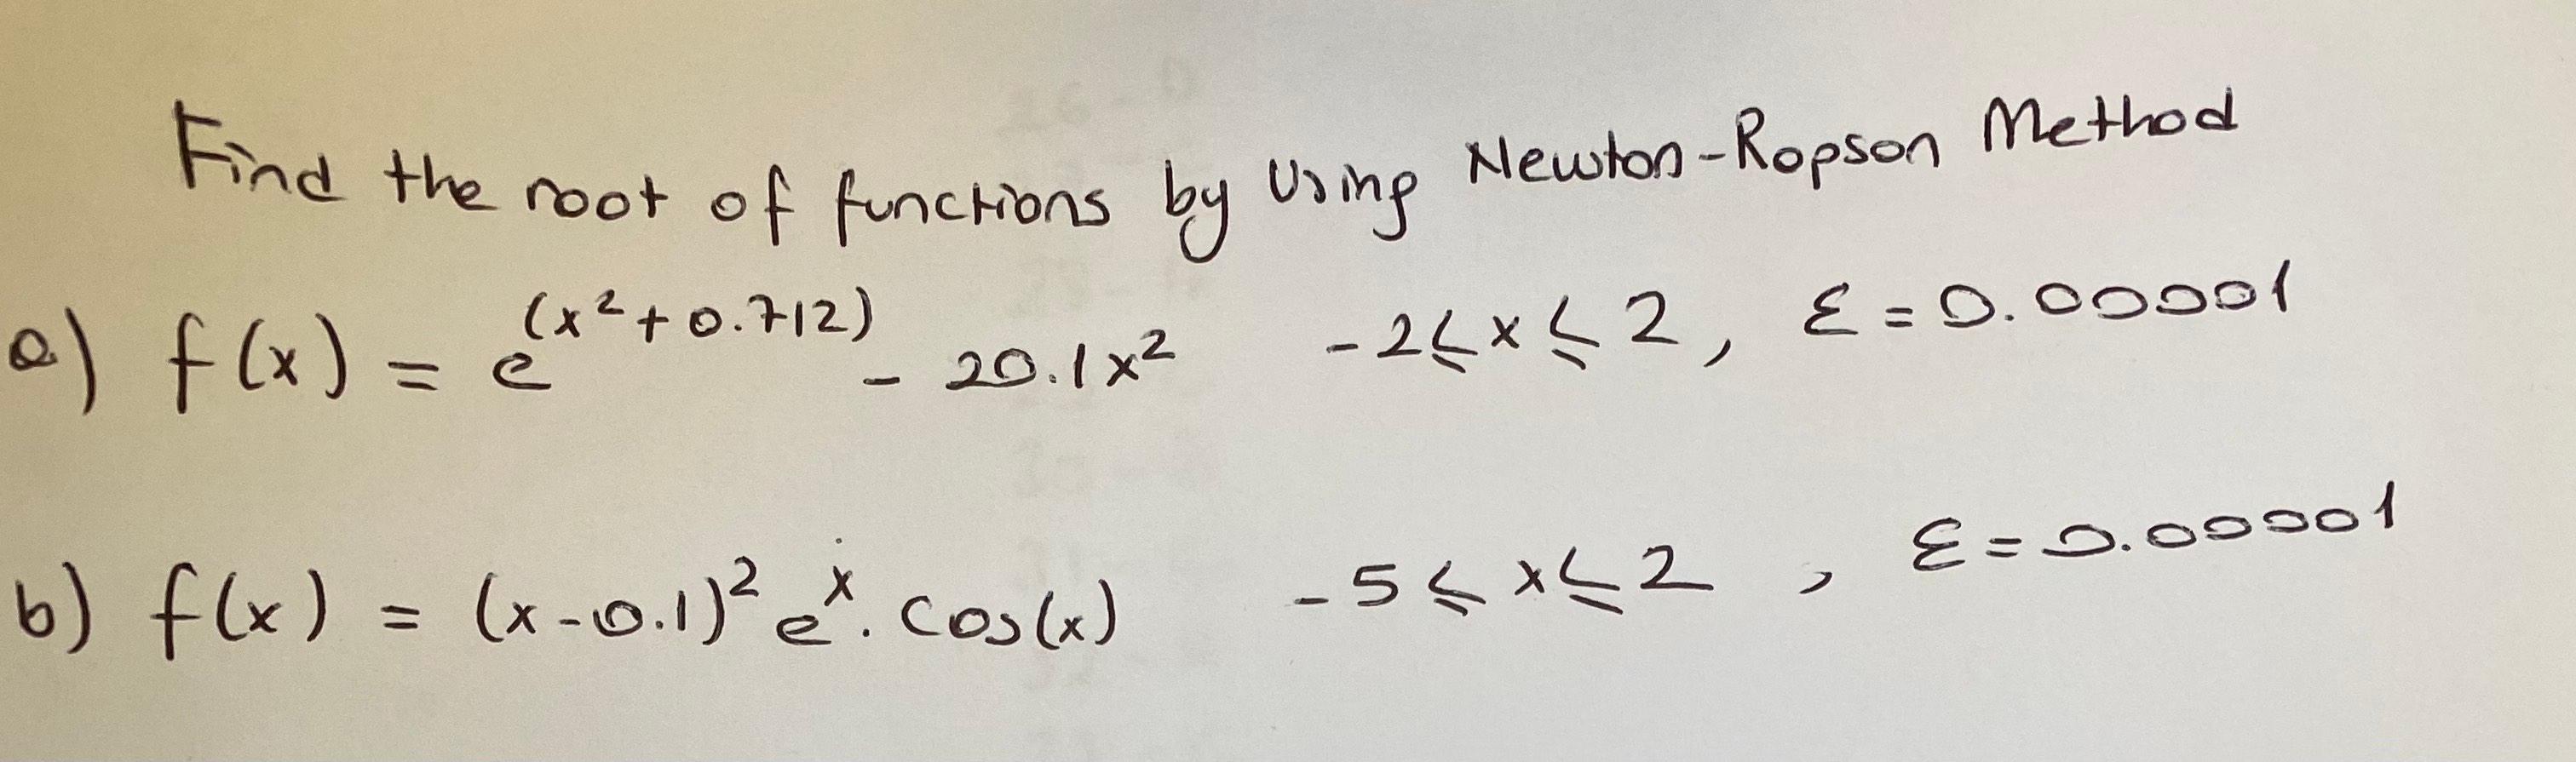 Find the root of functions by Using Newton-Ropson Method
a) f(x) = e^(x²+0.712) - 20.1x² -2≤x≤2, ε=0.00001
b) f(x) = (x-0.1)² e^x. cos(x) -5≤x≤2 , ε=0.00001